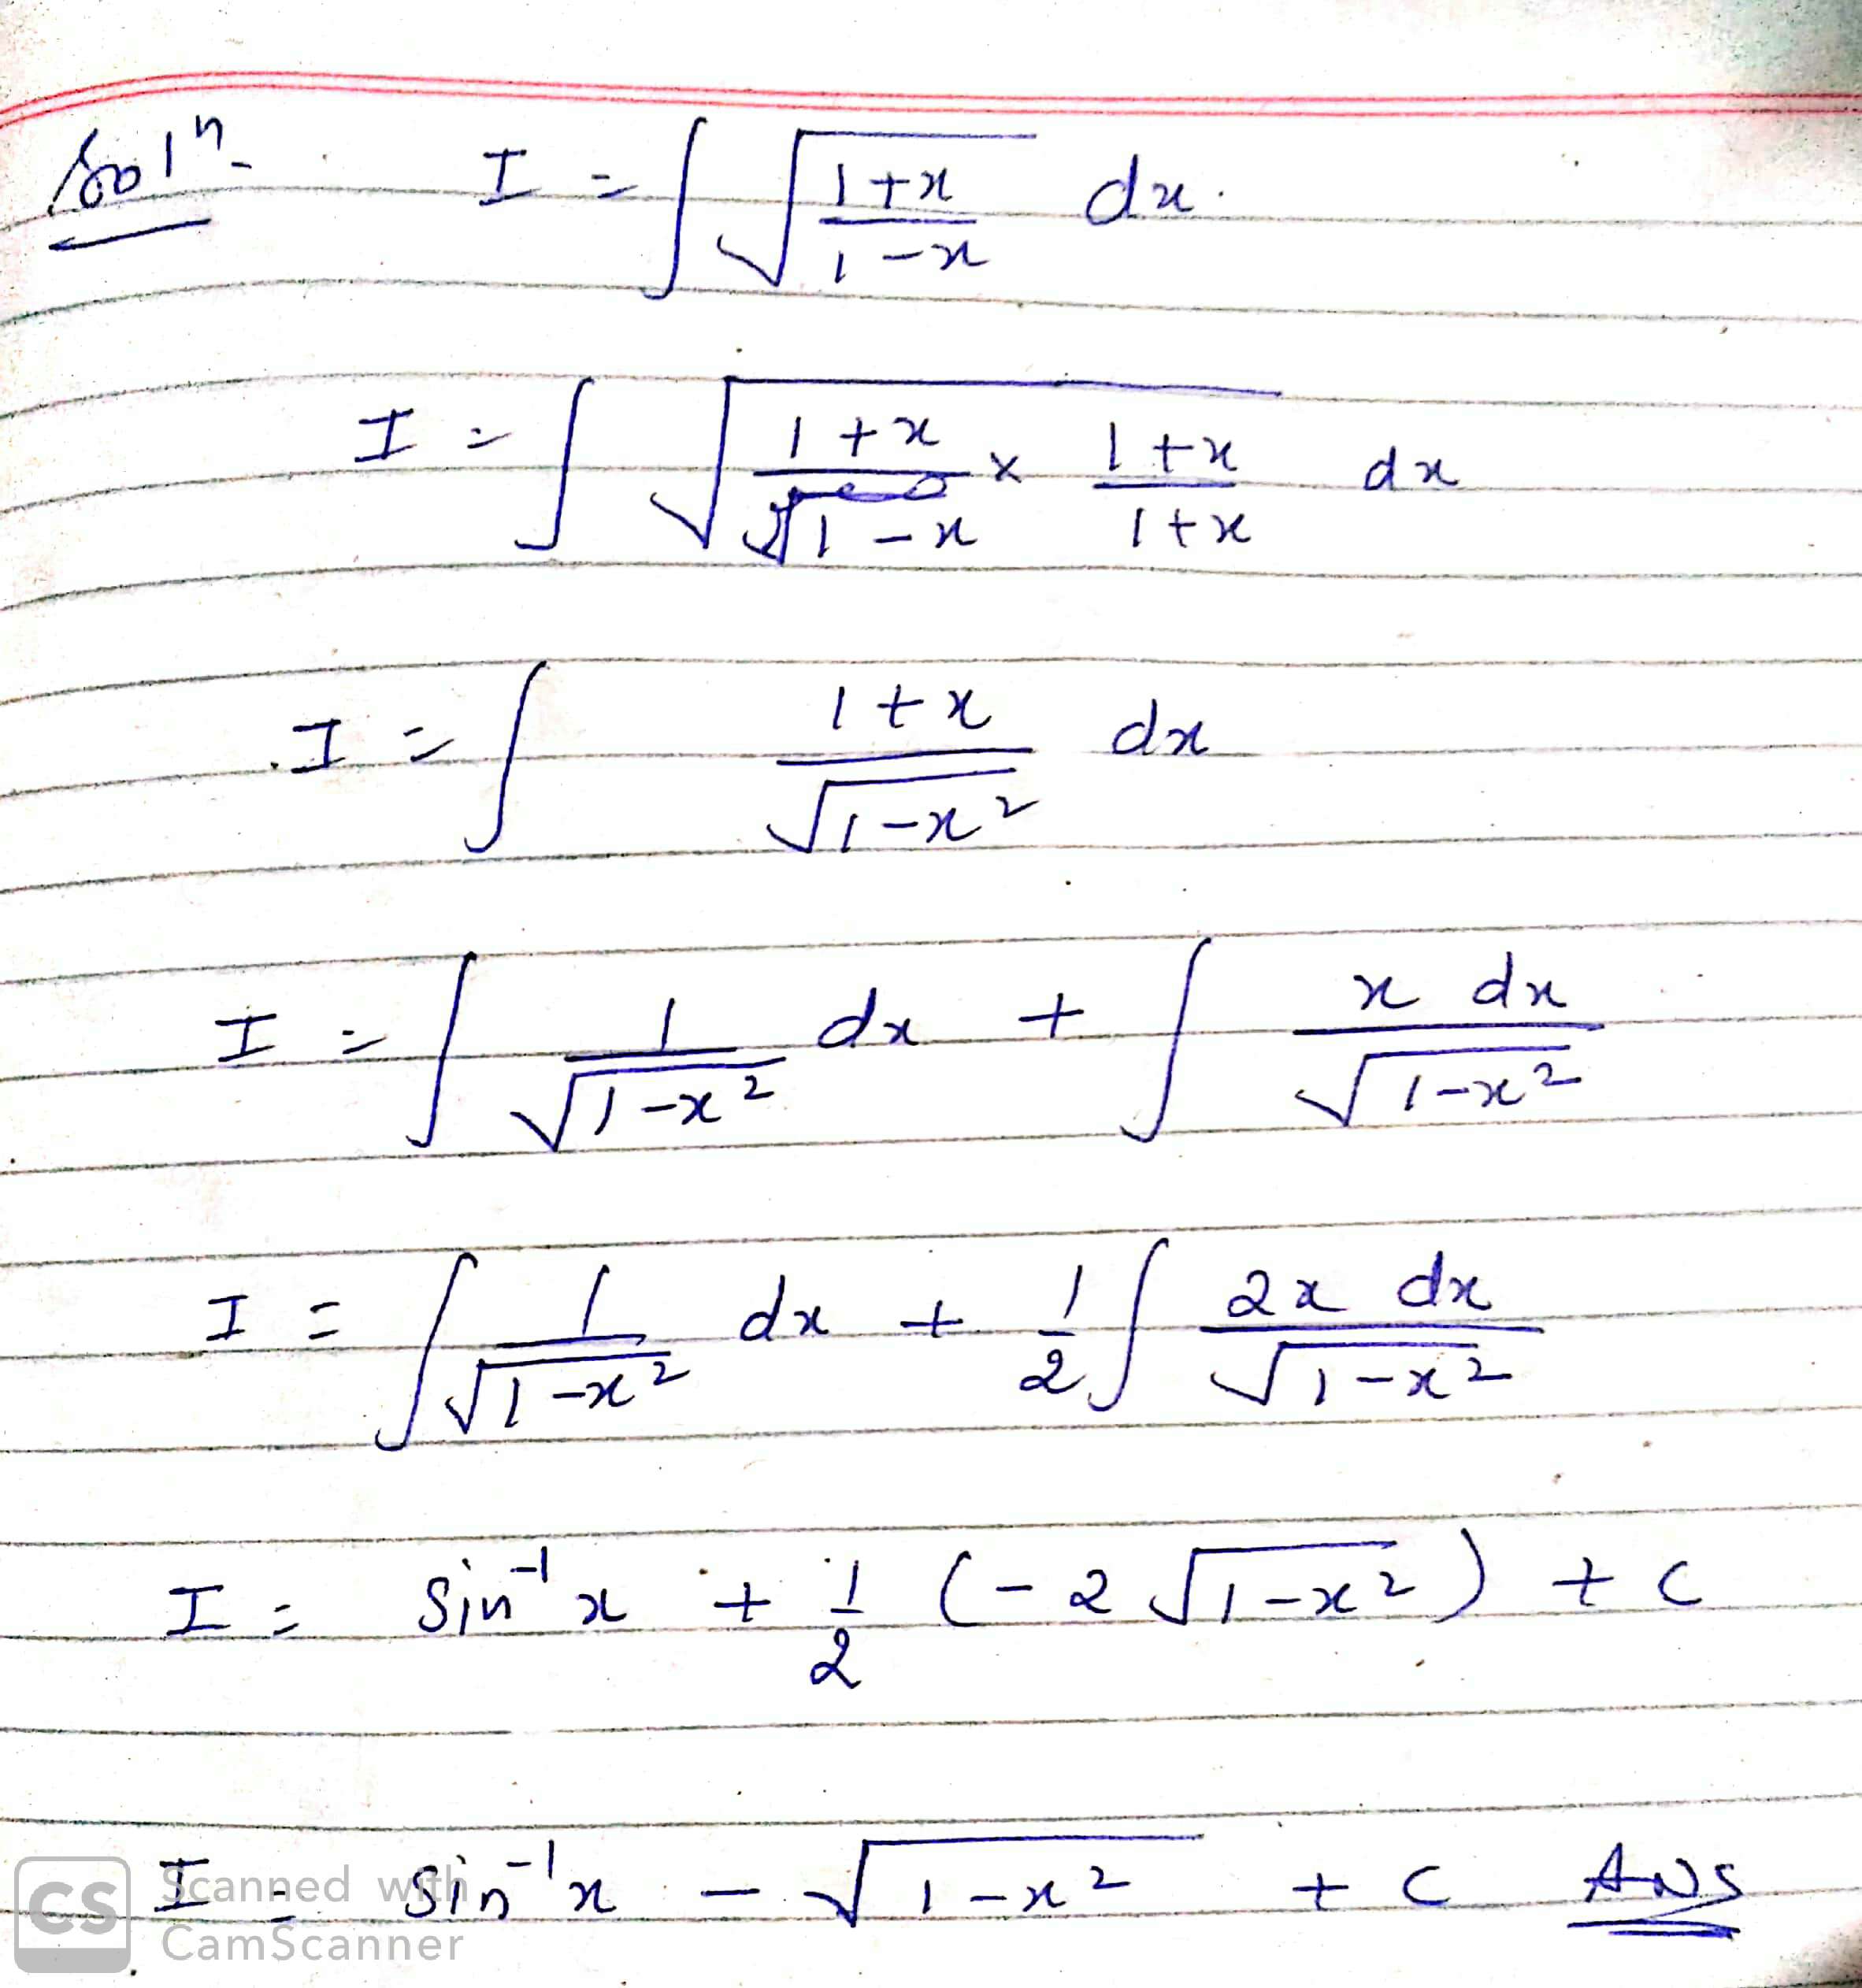 Solⁿ- I = ∫ √((1+x)/(1-x)) dx.
I = ∫ √((1+x)/(1-x) × (1+x)/(1+x)) dx
I = ∫ (1+x)/√(1-x²) dx
I = ∫ 1/√(1-x²) dx + ∫ x dx/√(1-x²)
I = ∫ 1/√(1-x²) dx + 1/2 ∫ 2x dx/√(1-x²)
I = Sin⁻¹x + 1/2 (-2√(1-x²)) + C
I = Sin⁻¹x - √(1-x²) + C ANS
CS Scanned with
CamScanner